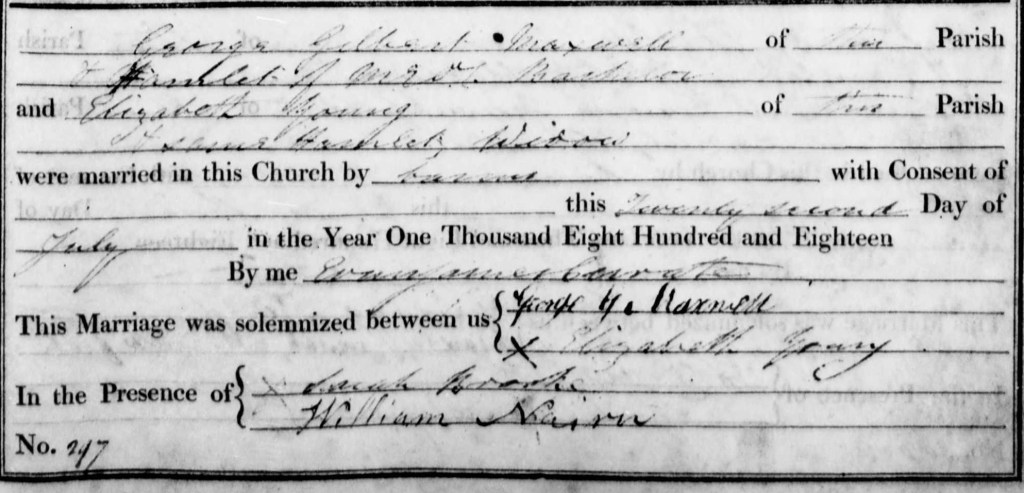 George Gilbert Maxwell of this Parish
& Hamlet of Bachelor
and Elizabeth Young of this Parish
& same Hamlet Widow
were married in this Church by banns with Consent of
this Twenty second Day of
July in the Year One Thousand Eight Hundred and Eighteen
By me Evan James Curate
This Marriage was solemnized between us { George G. Maxwell
X Elizabeth Young
In the Presence of { X Sarah Brooke
William Nairn
No. 247